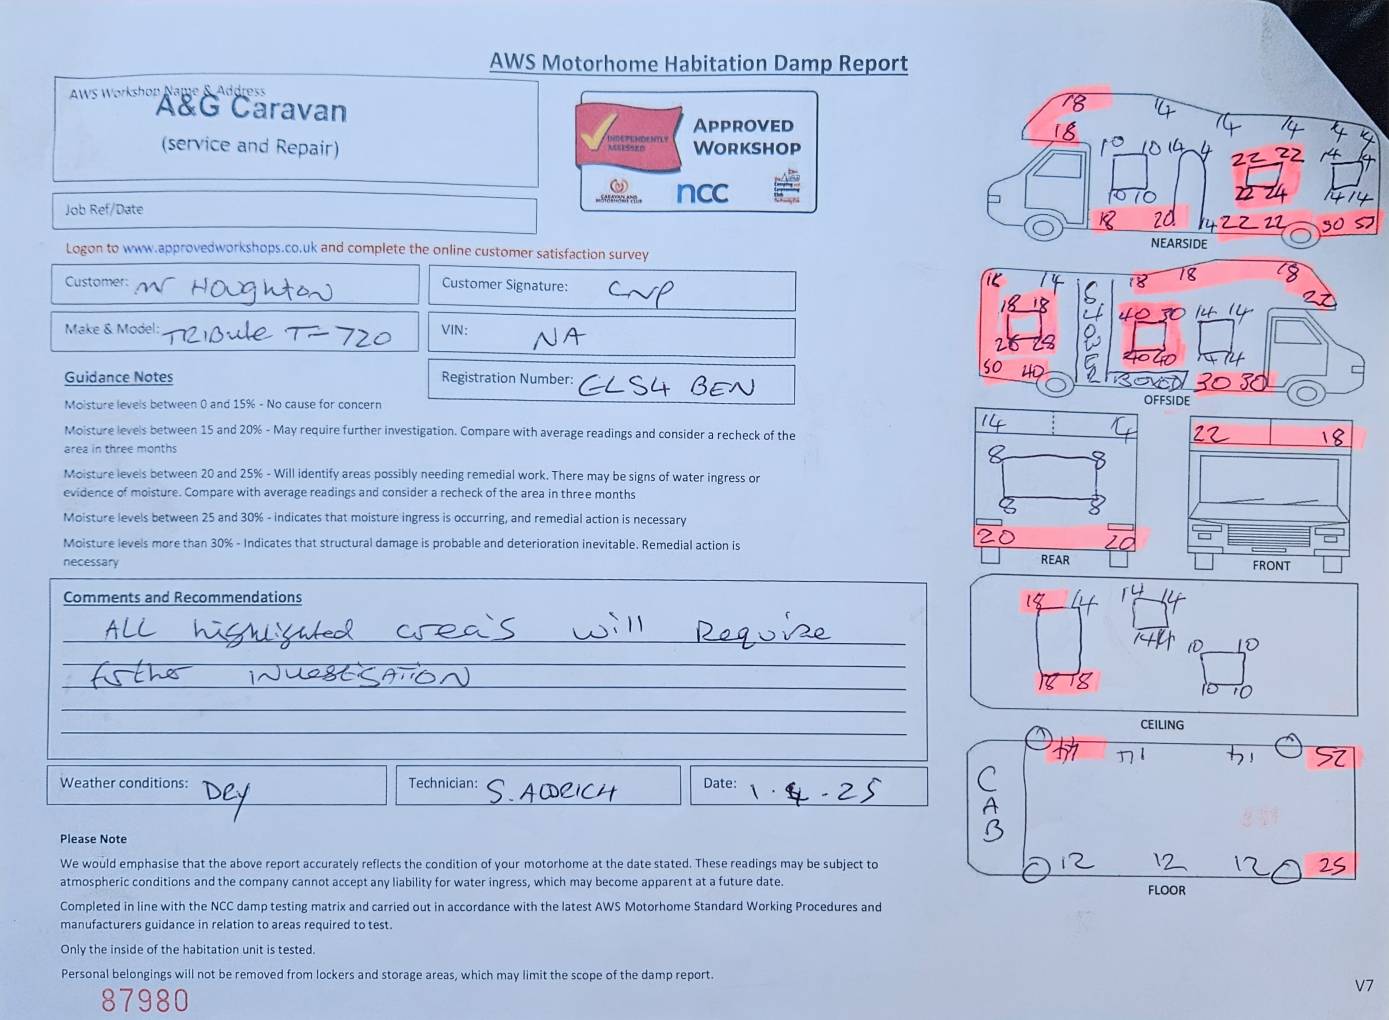 AWS Motorhome Habitation Damp Report
AWS Workshop Name & Address
A&G Caravan
(service and Repair)
INDEPENDENTLY
ASSESSED
APPROVED
WORKSHOP
CARAVAN AND
MOTORHOME CLUB
ncc
Job Ref/Date
Logon to www.approvedworkshops.co.uk and complete the online customer satisfaction survey
Customer: Mr Houghton
Customer Signature: CNP
Make & Model: TRIBUTE T-720
VIN: NA
Guidance Notes
Registration Number: GLS4 BEN
Moisture levels between 0 and 15% - No cause for concern
Moisture levels between 15 and 20% - May require further investigation. Compare with average readings and consider a recheck of the
area in three months
Moisture levels between 20 and 25% - Will identify areas possibly needing remedial work. There may be signs of water ingress or
evidence of moisture. Compare with average readings and consider a recheck of the area in three months
Moisture levels between 25 and 30% - Indicates that moisture ingress is occurring, and remedial action is necessary
Moisture levels more than 30% - Indicates that structural damage is probable and deterioration inevitable. Remedial action is
necessary
Comments and Recommendations
ALL highlighted area's will Require
further INVESTIGATION
Weather conditions: DRY
Technician: S. ALDRICH
Date: 1.4.25
Please Note
We would emphasise that the above report accurately reflects the condition of your motorhome at the date stated. These readings may be subject to
atmospheric conditions and the company cannot accept any liability for water ingress, which may become apparent at a future date.
Completed in line with the NCC damp testing matrix and carried out in accordance with the latest AWS Motorhome Standard Working Procedures and
manufacturers guidance in relation to areas required to test.
Only the inside of the habitation unit is tested.
Personal belongings will not be removed from lockers and storage areas, which may limit the scope of the damp report.
87980
18 14 14 14 14 14
18
10 10 14 4 22 22 14 14
10 10 22 24 14 14
18 20 14 22 22 30 52
NEARSIDE
18 14 18 18 18 22
18 18 40 30 14 14
26 28 40 40 14 14
50 40 BOXED 30 30
OFFSIDE
14 14
8 8
8 8
20 20
REAR
22 18
FRONT
18 14 14 14
14 14 10 10
18 18 10 10
CEILING
14 14 25
CAB
12 12 12 25
FLOOR
V7